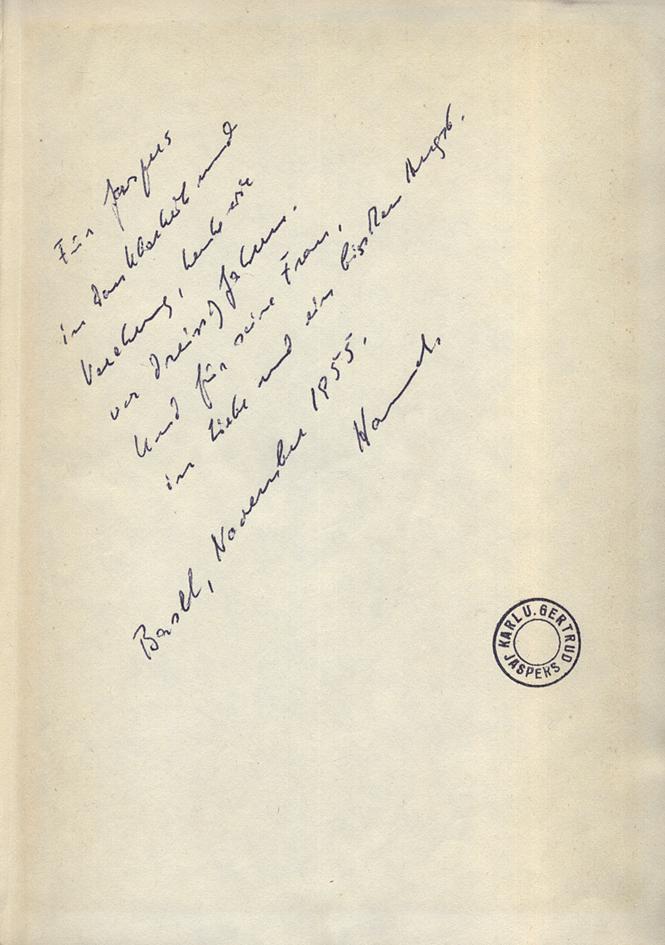 Für Jaspers
in Dankbarkeit und
Verehrung, heute wie
vor dreissig Jahren.
Und für seine Frau,
in Liebe und ein bisschen Angst.
Basel, November 1955.
Hannah.
KARL U. GERTRUD
JASPERS